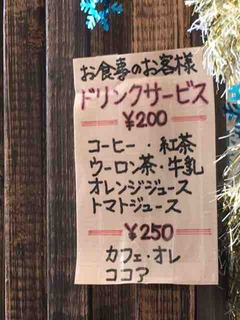 お食事のお客様
ドリンクサービス
¥200
コーヒー・紅茶
ウーロン茶・牛乳
オレンジジュース
トマトジュース
¥250
カフェ・オレ
ココア